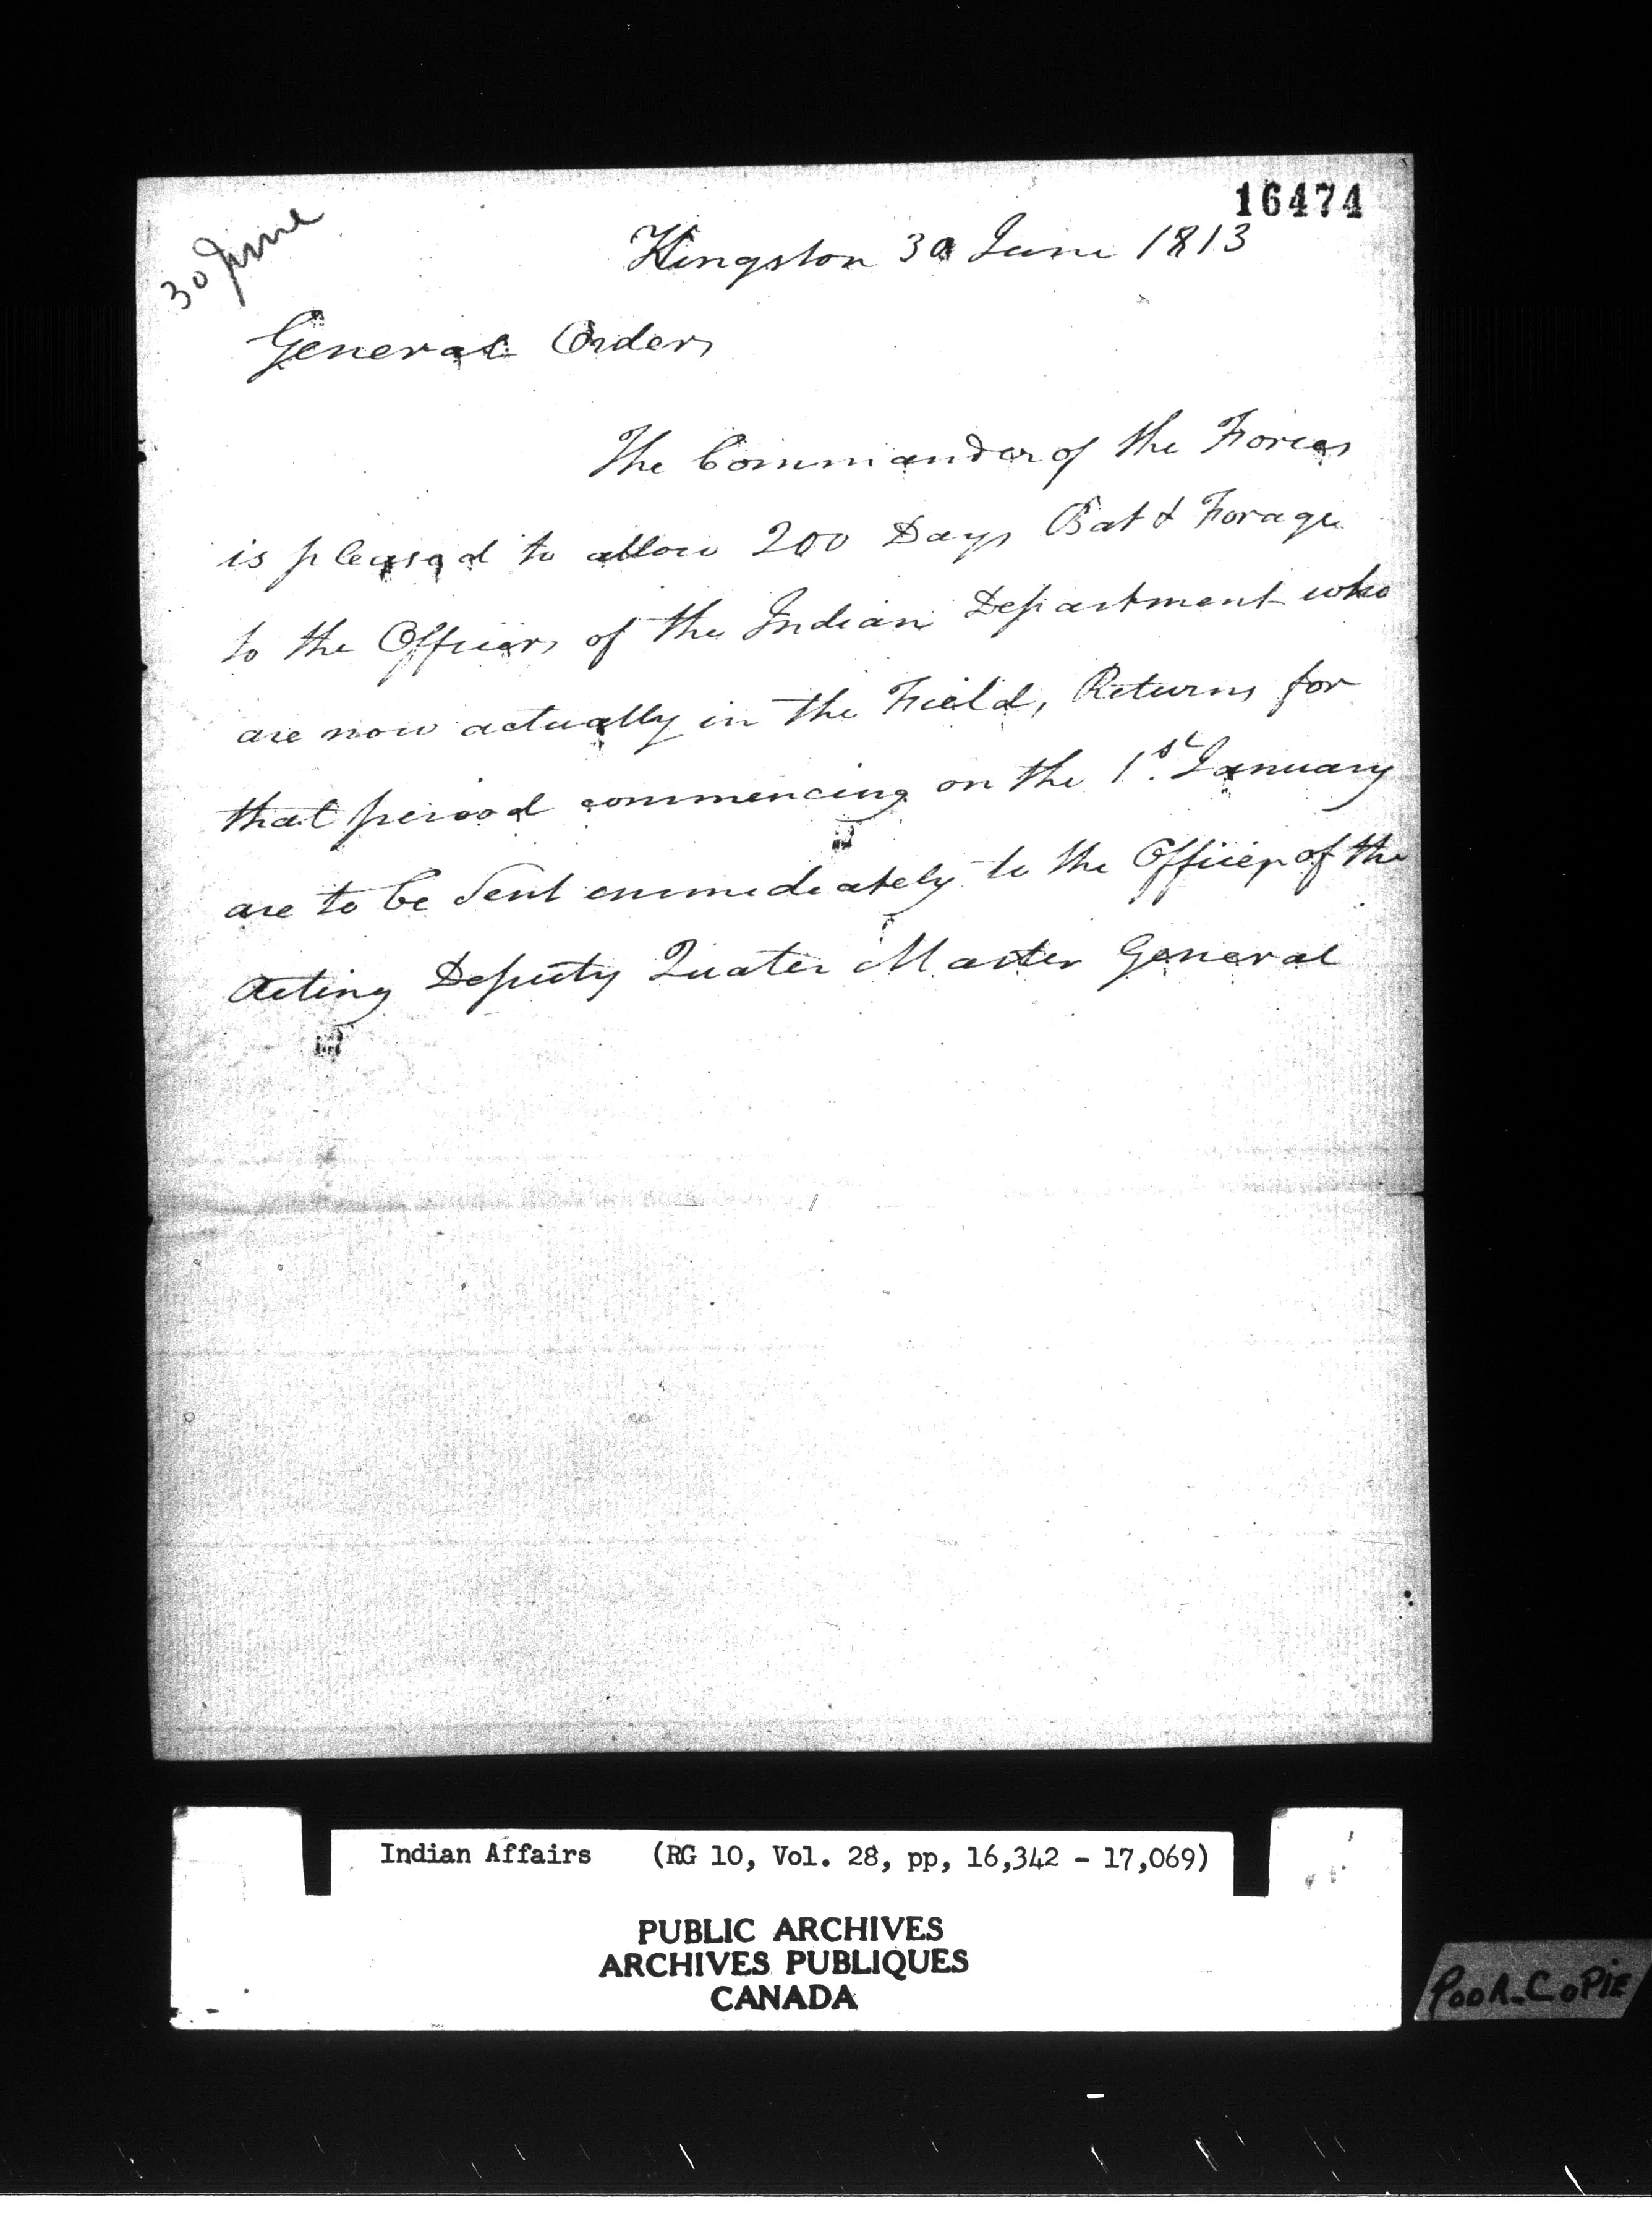 16474
30 June
Kingston 30 June 1813
General Orders
The Commander of the Forces
is pleased to allow 200 Days Bat & Forage
to the Officers of the Indian Department who
are now actually in the Field, Returns for
that period commencing on the 1st. January
are to be Sent emmediately to the Officer of the
Acting Deputy Quater Master General
Indian Affairs (RG 10, Vol. 28, pp, 16,342 - 17,069)
PUBLIC ARCHIVES
ARCHIVES PUBLIQUES
CANADA
POOR COPIE